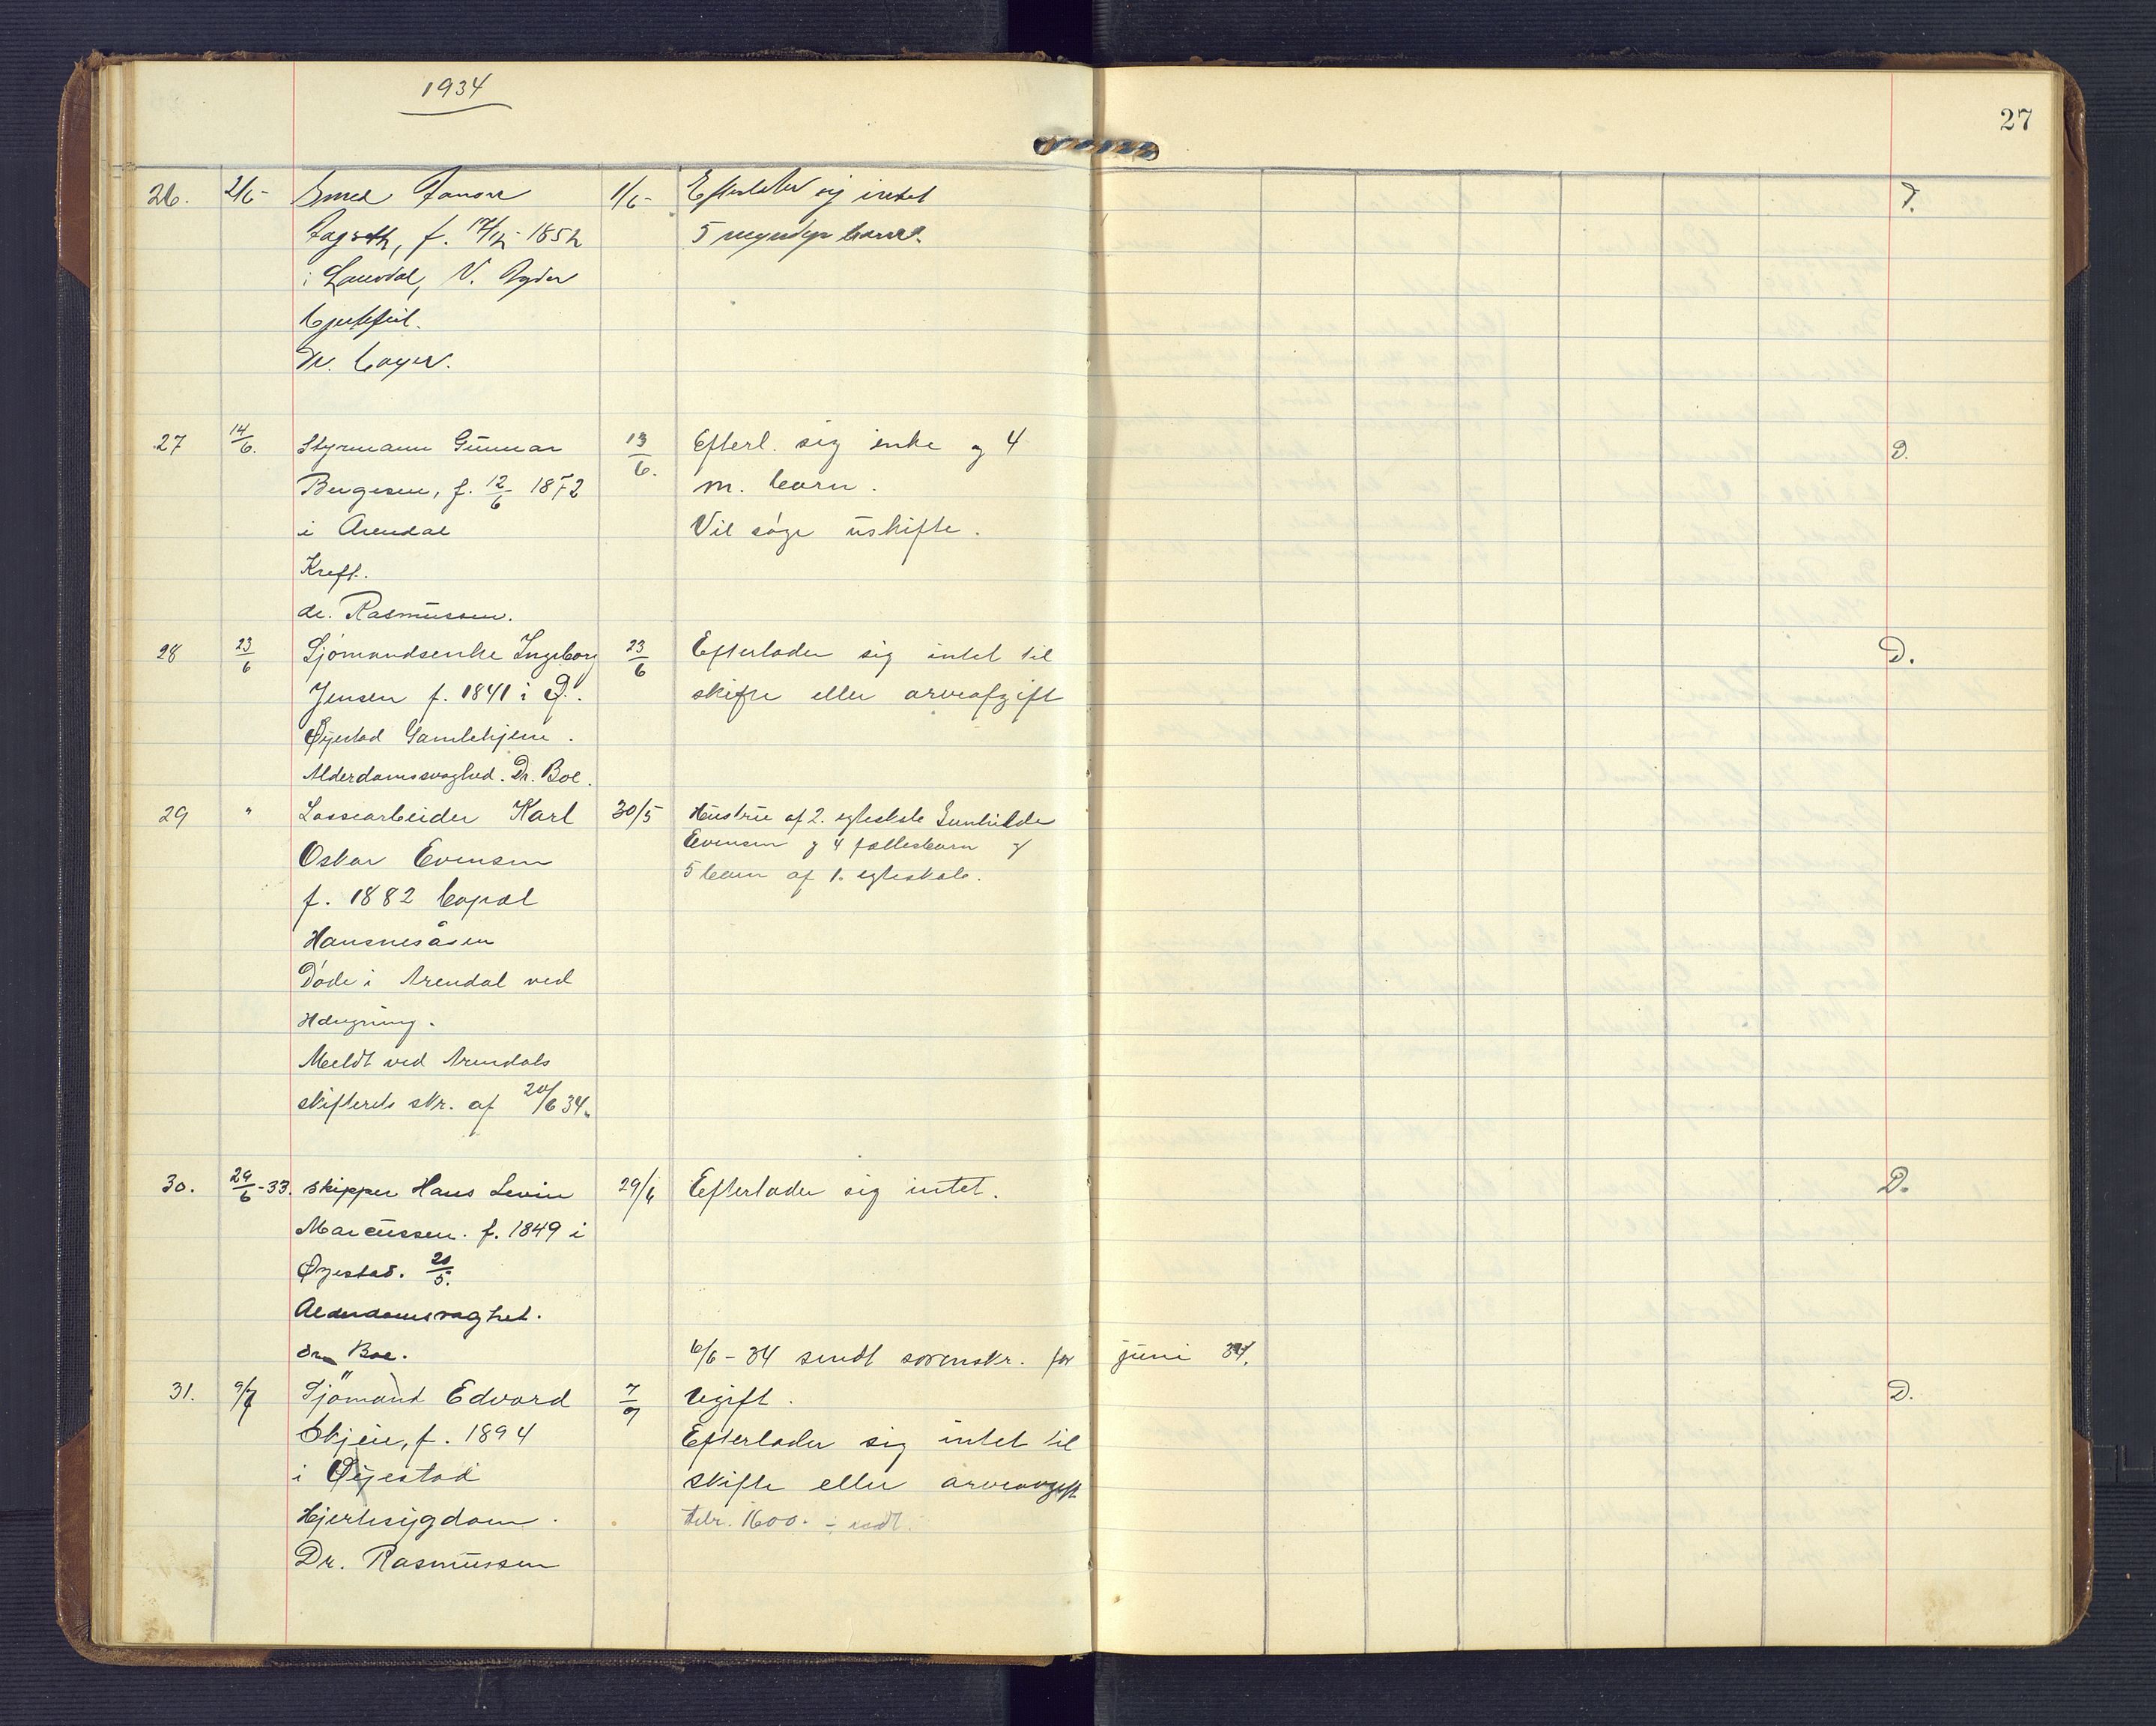 1934
27
26. 2/6- Smed 1/6- Efterlater sig intet D.
f. 17/12 1852 5 myndige barn.
i Laudal, V. Agder
Hjertefeil.
Dr.
27 14/6. Styrmann Gunnar 13/6. Efterl. sig enke og 4 D.
Bergesen, f. 12/6 1872 m. barn.
i Arendal Vil søge uskifte.
Kreft.
dr. Rasmussen.
28 23/6 Sjömandsenke Ingeborg 23/6 Efterlader sig intet til D.
Jensen f. 1841 i Ø. skifte eller arveafgift
Øyestad Gamlehjem.
Alderdomssvaghed. Dr. Boe.
29 " Lossearbeider Karl 30/5 Hustru af 2. egteskab Gunhilda
Oskar Evensen Evensen og 4 fællesbarn og
f. 1882 bopæl 5 barn af 1. egteskab.
Hansnesåsen
Døde i Arendal ved
Hængning.
Meldt ved Arendals
skifterets skr. af 20/6 34.
30. 29/6-33. skipper Hans Levin 29/6 Efterlader sig intet. D.
Marcussen. f. 1849 i
Øyestad. 20/5.
Alderdomsvaghet.
dr. Boe. 6/6-34 sendt sorenskr. for juni 34.
31. 9/7 Sjömand Edvard 7/7 Ugift. D.
Skjeie, f. 1894 Efterlader sig intet til
i Øyestad skifte eller arveavgift
Hjertesygdom. 1600.-
Dr. Rasmussen